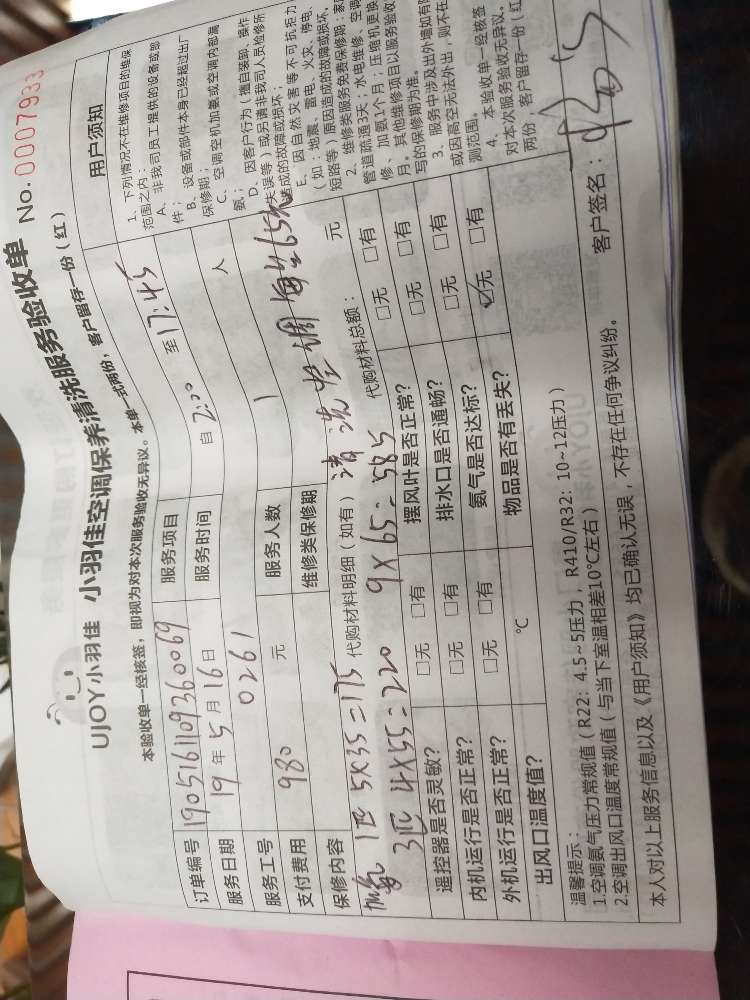 UJOY小羽佳 小羽佳空调保养清洗服务验收单 No.0007933
本验收单一经核签，即视为对本次服务验收无异议。本单一式两份，客户留存一份（红）
订单编号 190516110936 0069 服务项目
服务日期 19年5月16日 服务时间 自2:00 至17:45
服务工号 0261 服务人数 1 人
支付费用 980 元 维修类保修期
保修内容 清洗空调每台65元
加氨 1匹 5X35=175 代购材料明细（如有） 代购材料总额： 元
3匹 4X55=220 9X65=585
遥控器是否灵敏？ □无 □有 摆风叶是否正常？ □无 □有
内机运行是否正常？ □无 □有 排水口是否通畅？ □无 □有
外机运行是否正常？ □无 □有 氨气是否达标？ □无 □有
出风口温度值？ ℃ 物品是否有丢失？ ☑无 □有
用户须知
1、下列情况不在维修项目的维保
范围之内：
A、非我司员工提供的设备或部
件；
B、设备或部件本身已经超过出厂
保修期；
C、空调空机加氨或空调内部漏
氨；
D、因客户行为（擅自装卸、操作
失误等）或另请非我司人员检修所
造成的故障或损坏；
E、因自然灾害等不可抗拒力
（如：地震、雷电、火灾、停电、
短路等）原因造成的故障或损坏。
2、维修类服务免费保修期：家
管道疏通3天；水电维修、空调
修、加氨1个月；压缩机更换
月。其他维修项目以服务验收
写的保修期为准。
3、服务中涉及出外墙如有限
或因高空无法外出，则不在
测范围。
4、本验收单一经核签
对本次服务验收无异议。
两份，客户留存一份（红
温馨提示：
1.空调氨气压力常规值（R22：4.5~5压力，R410/R32：10~12压力）
2.空调出风口温度常规值（与当下室温相差10℃左右）
本人对以上服务信息以及《用户须知》均已确认无误，不存在任何争议纠纷。
客户签名：